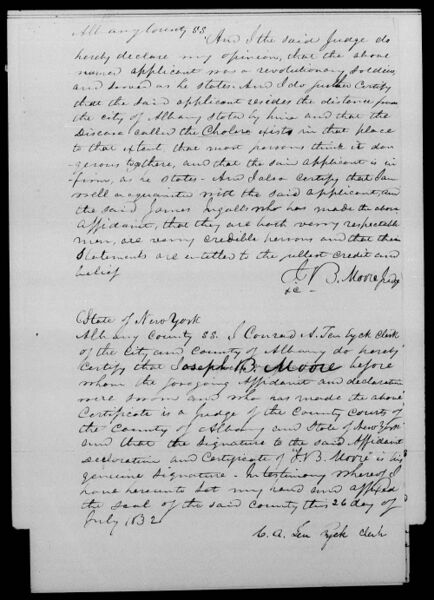 Albany County SS.
And I the said Judge do
hereby declare my opinion, that the above
named applicant was a revolutionary Soldier
and served as he states. And I do further Certify
that the said applicant resides the distance from
the city of Albany stated by him and that the
Disease called the Cholera exists in that place
to that extent, that most persons think it dan
gerous to go there, and that the said applicant is in
firm, as he states - And I also certify that I am
well acquainted with the said applicant, and
the said James Ingalls who has made the above
Affidavit, that they are both verry respectable
men, are verry credible persons and that their
Statements are entitled to the fullest credit and
belief
J. B. Moore Judge
&c -
State of New York
Albany County SS. I Conrad A. Ten Eyck Clerk
of the City and County of Albany do hereby
Certify that Joseph B. Moore before
whom the foregoing Affidavit and declaration
were sworn and who has made the above
Certificate is a Judge of the County Courts of
the County of Albany and State of New York
and that the Signature to the said Affidavit
Declaration and Certificate of "J. B. Moore" is his
genuine Signature - In testimony whereof I
have hereunto Set my hand and affixed
the Seal of the said County this 26 day of
July 1832
C. A. Ten Eyck Clerk